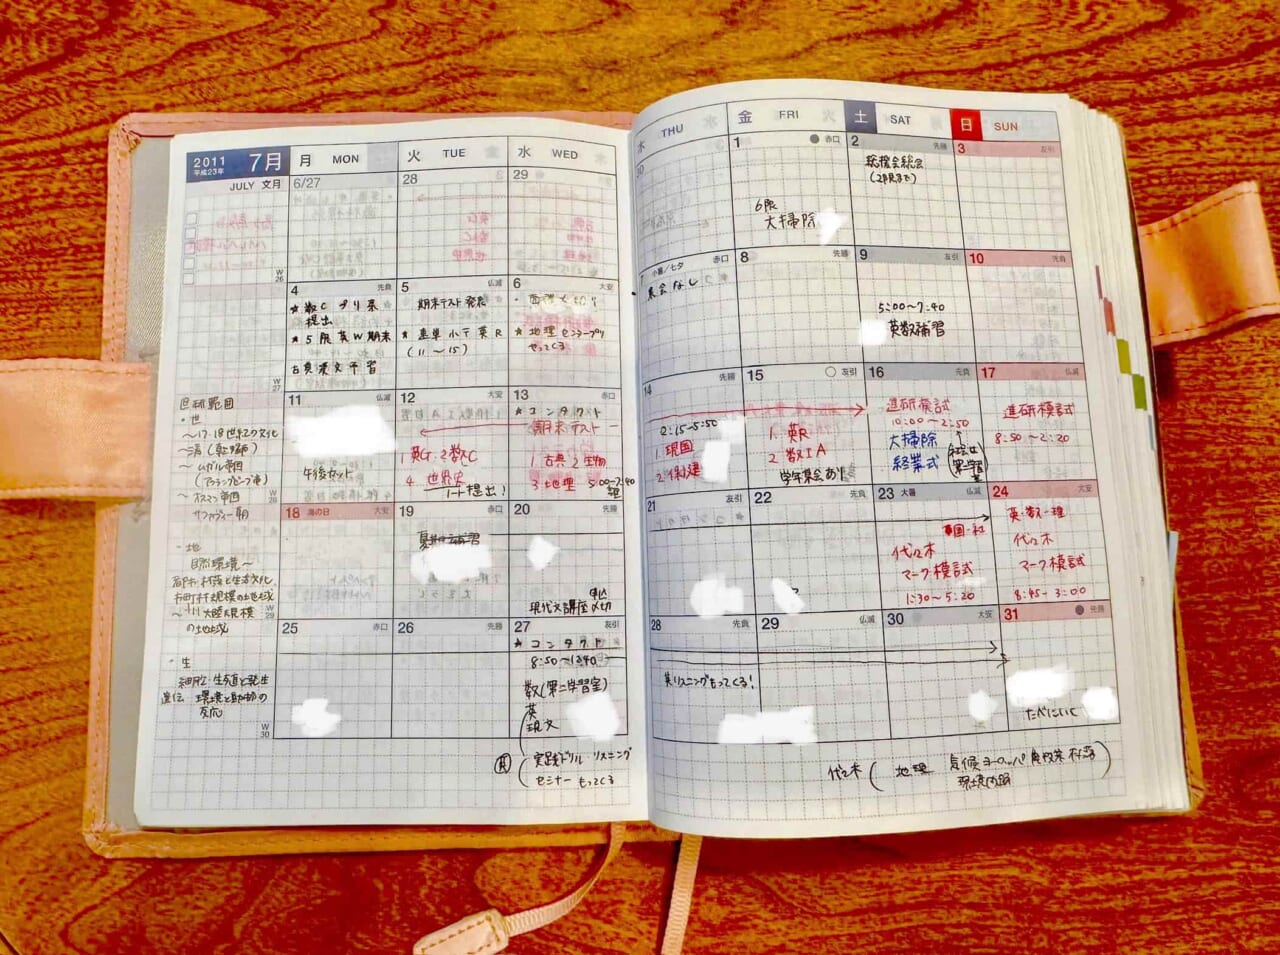 2011
平成23年
7月
月 MON
火 TUE
水 WED
THU
金 FRI
土 SAT
日 SUN
JULY 文月
6/27
28
29
30
1 赤口
6限
大掃除
2 先勝
(2限まで)
3 友引
W
26
4 先負
★数C プリ 菜
提出
★5限 英W期末
古典 漢文 予習
5 仏滅
期末テスト発表
(11～15)
6 大安
★地理センタープリ
やってくる
7 小暑/七夕 赤口
集会なし
8 先勝
9 友引
5:00～7:40
英数補習
10 先負
W
27
・世
～17・18世紀の文化
～清
～ムガル帝国
～オスマン帝国
サファヴィー朝
11 仏滅
午後カット
12 大安
1 英G 2 数C
4 世界史
ノート提出!
13 赤口
★コンタクト
期末テスト
1. 古典 2 生物
3. 地理
5:00～7:40
14 先勝
1. 現国
2. 保健
15 友引
1. 英R
2. 数ⅠA
学年集会あり
16 先負
進研模試
10:00～2:50
大掃除
終業式
17 仏滅
進研模試
8:50～2:20
W
28
・地
自然環境～
都市・村落と生活文化
市町村規模の地域
～州・大陸規模
の地域
18 海の日 大安
19 赤口
夏期補習
20 先勝
現代文講座 申込
〆切
21 友引
22 先負
23 大暑 仏滅
国・社
代々木
マーク模試
1:30～5:20
24 大安
英・数・理
代々木
マーク模試
8:45-3:00
W
29
・生
細胞・生殖と発生
遺伝 環境と動物の
反応
25 赤口
26 先勝
27 友引
★コンタクト
数(第二学習室)
英
現文
28 先負
英リスニングもってくる!
29 仏滅
30 大安
31 先勝
たべにいく
W
30
実践ドリル・リスニング
セミナー もってくる
代々木(地理